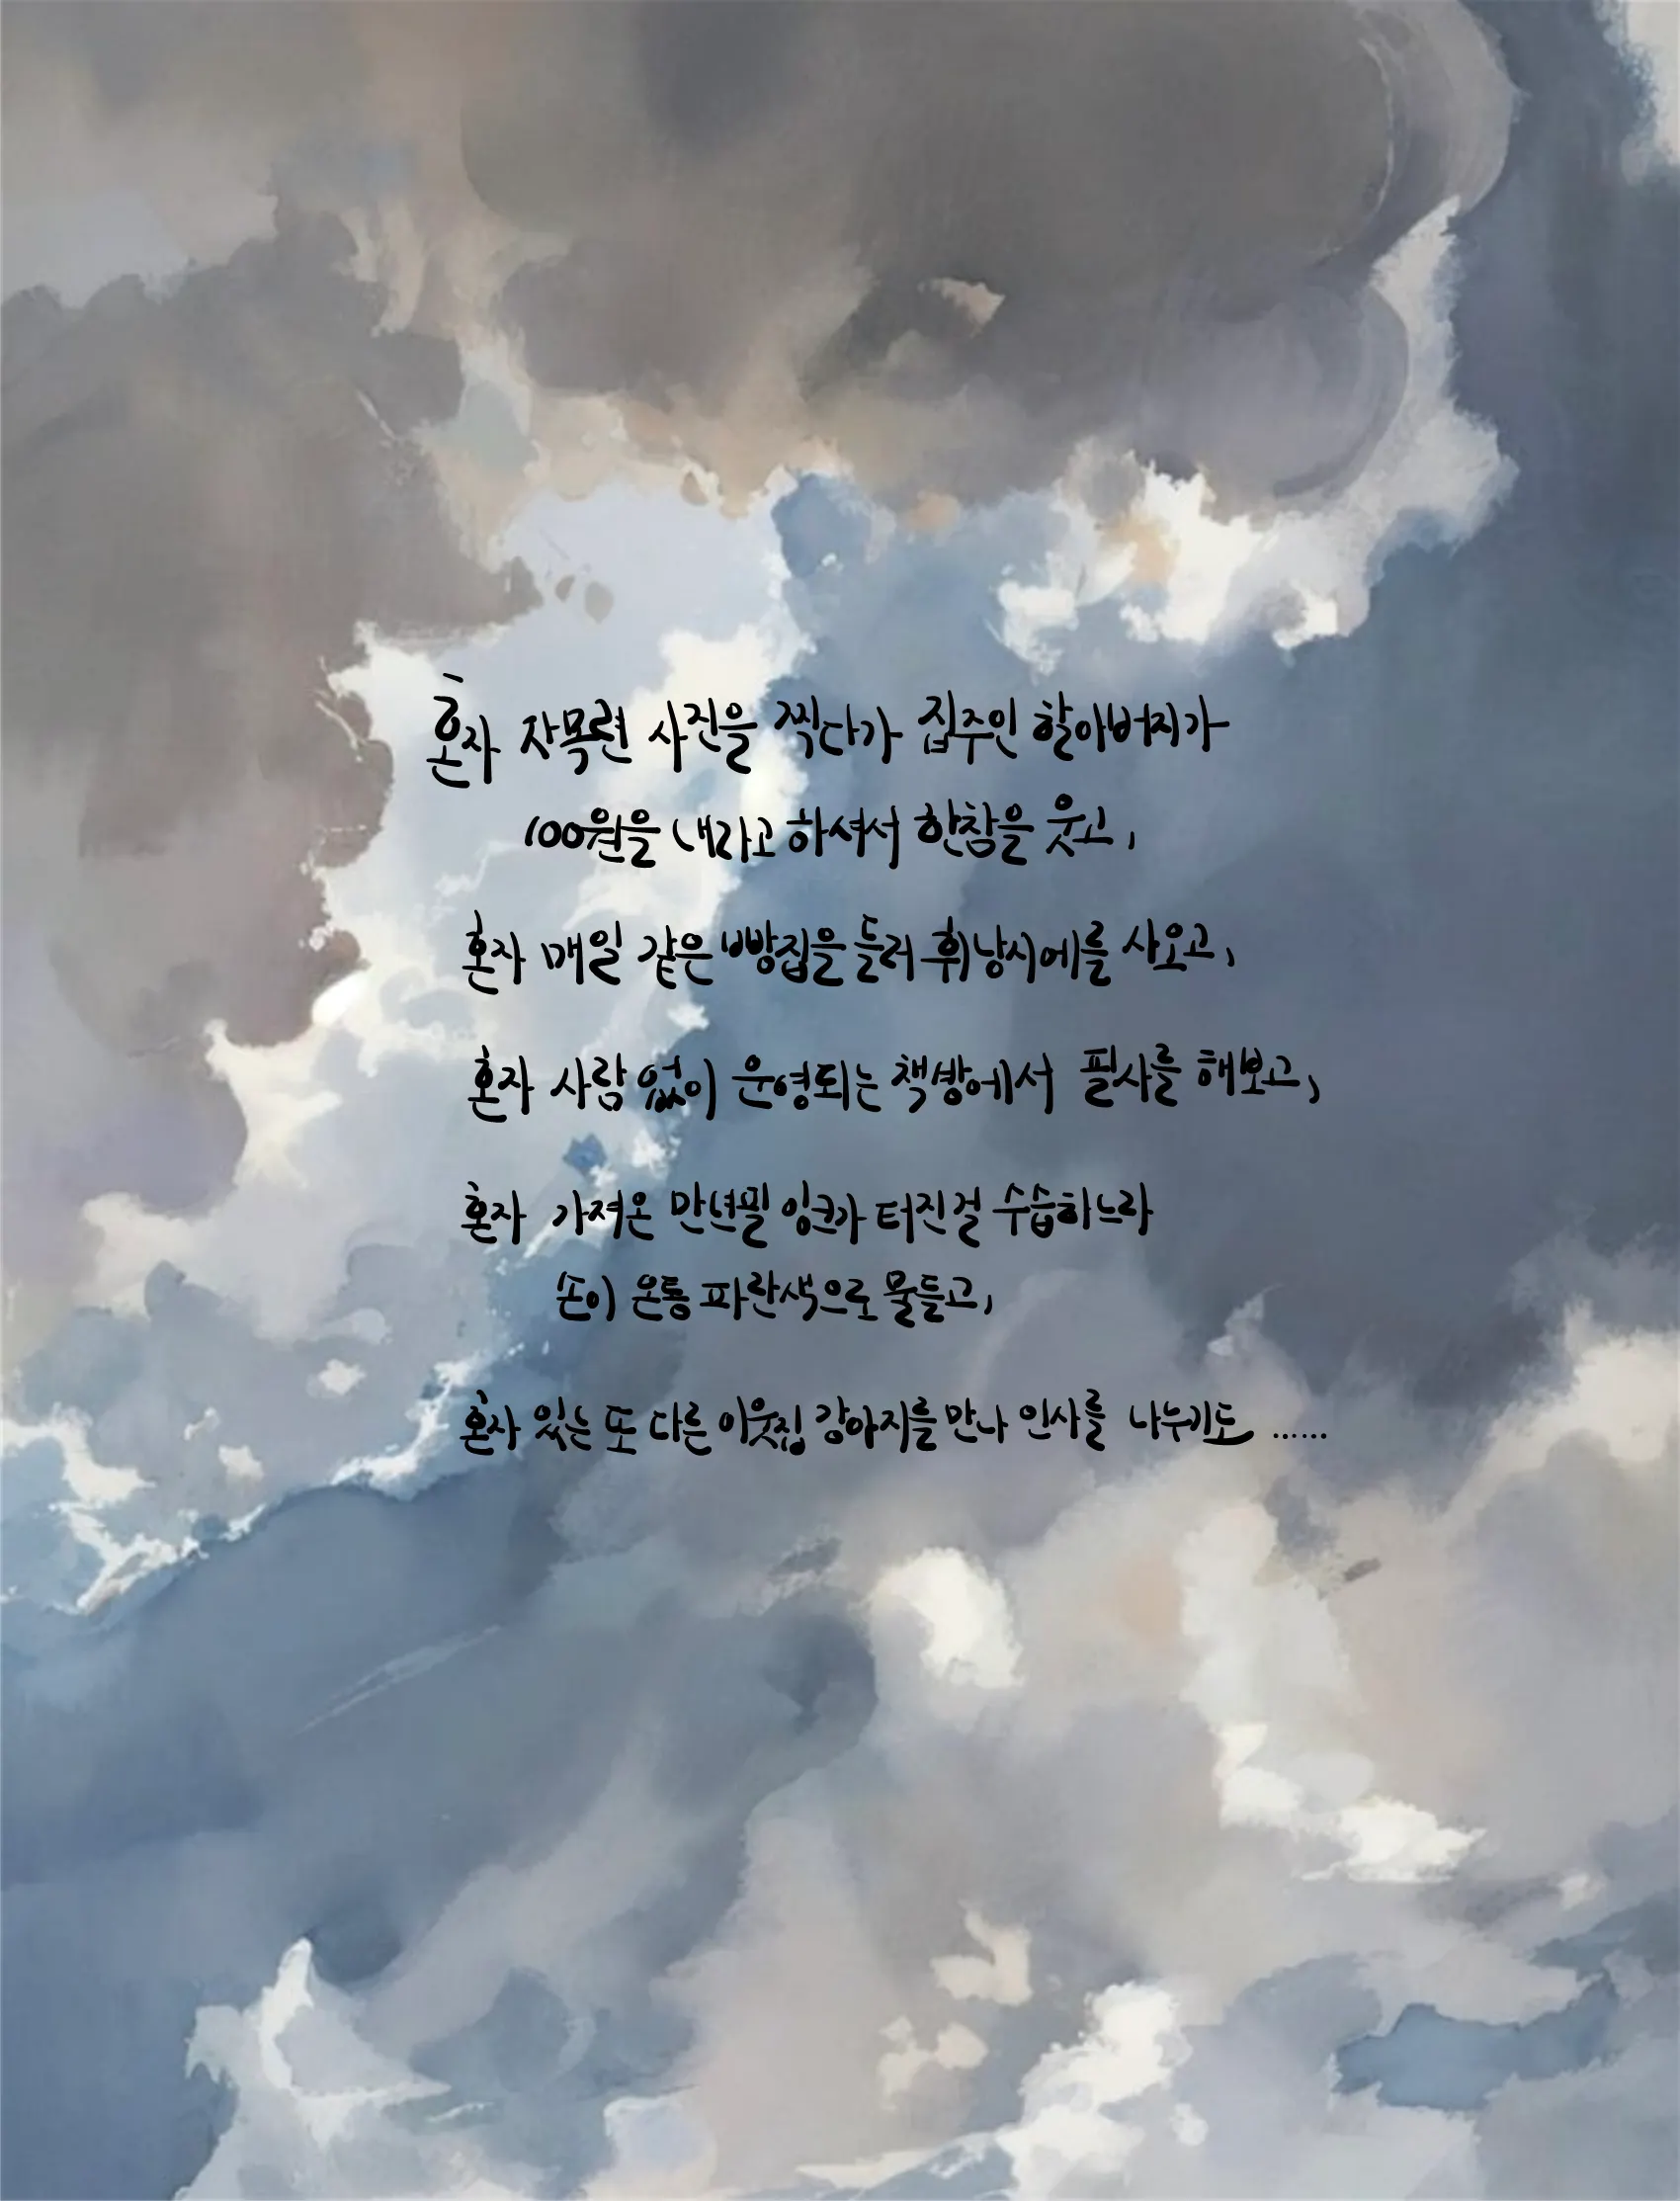 혼자 자목련 사진을 찍다가 집주인 할아버지가
100원을 내라고 하셔서 한참을 웃고,
혼자 매일 같은 빵집을 들러 휘낭시에를 사오고,
혼자 사람 없이 운영되는 책방에서 필사를 해보고,
혼자 가져온 만년필 잉크가 터진걸 수습하느라
손이 온통 파란색으로 물들고,
혼자 있는 또 다른 이웃집 강아지를 만나 인사를 나누기도 ......